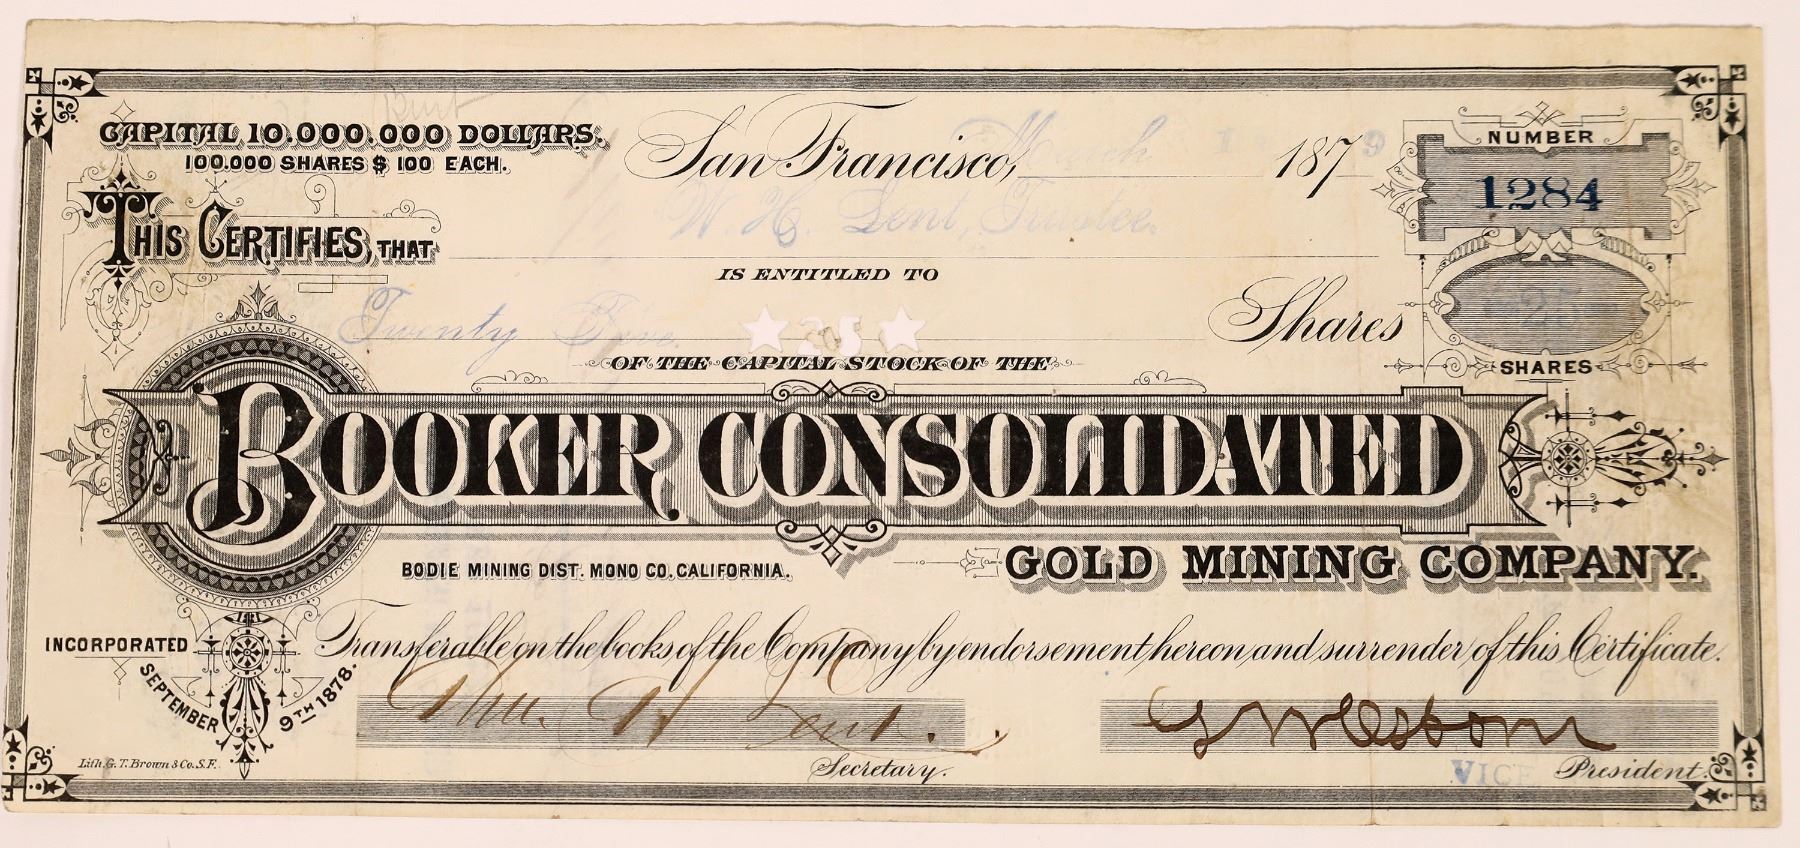 CAPITAL 10.000.000 DOLLARS.
100.000 SHARES $ 100 EACH.
San Francisco, March 1 1879
NUMBER
1284
W. H. Lent, Trustee.
THIS CERTIFIES, THAT
IS ENTITLED TO
Twenty Five. ★ 25 ★ Shares
25
SHARES
OF THE CAPITAL STOCK OF THE
BOOKER CONSOLIDATED
GOLD MINING COMPANY.
BODIE MINING DIST. MONO CO. CALIFORNIA.
INCORPORATED
SEPTEMBER 9TH 1878.
Transferable on the books of the Company by endorsement hereon and surrender of this Certificate.
Lent.
G W Osborn
Secretary.
VICE President.
Lith. G. T. Brown & Co. S.F.